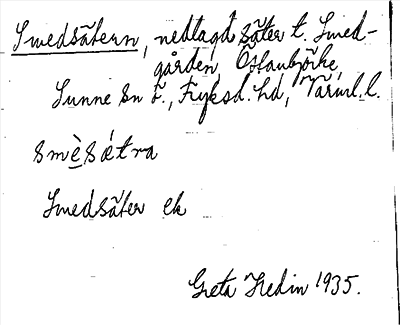 Smedsätern, nedlagd säter t. Smed-
gården, Östanbjörke,
Sunne sn ö., Fryksd. hd, Värml. l.
smèsætra
Smedsäter ek
Greta Hedin 1935.